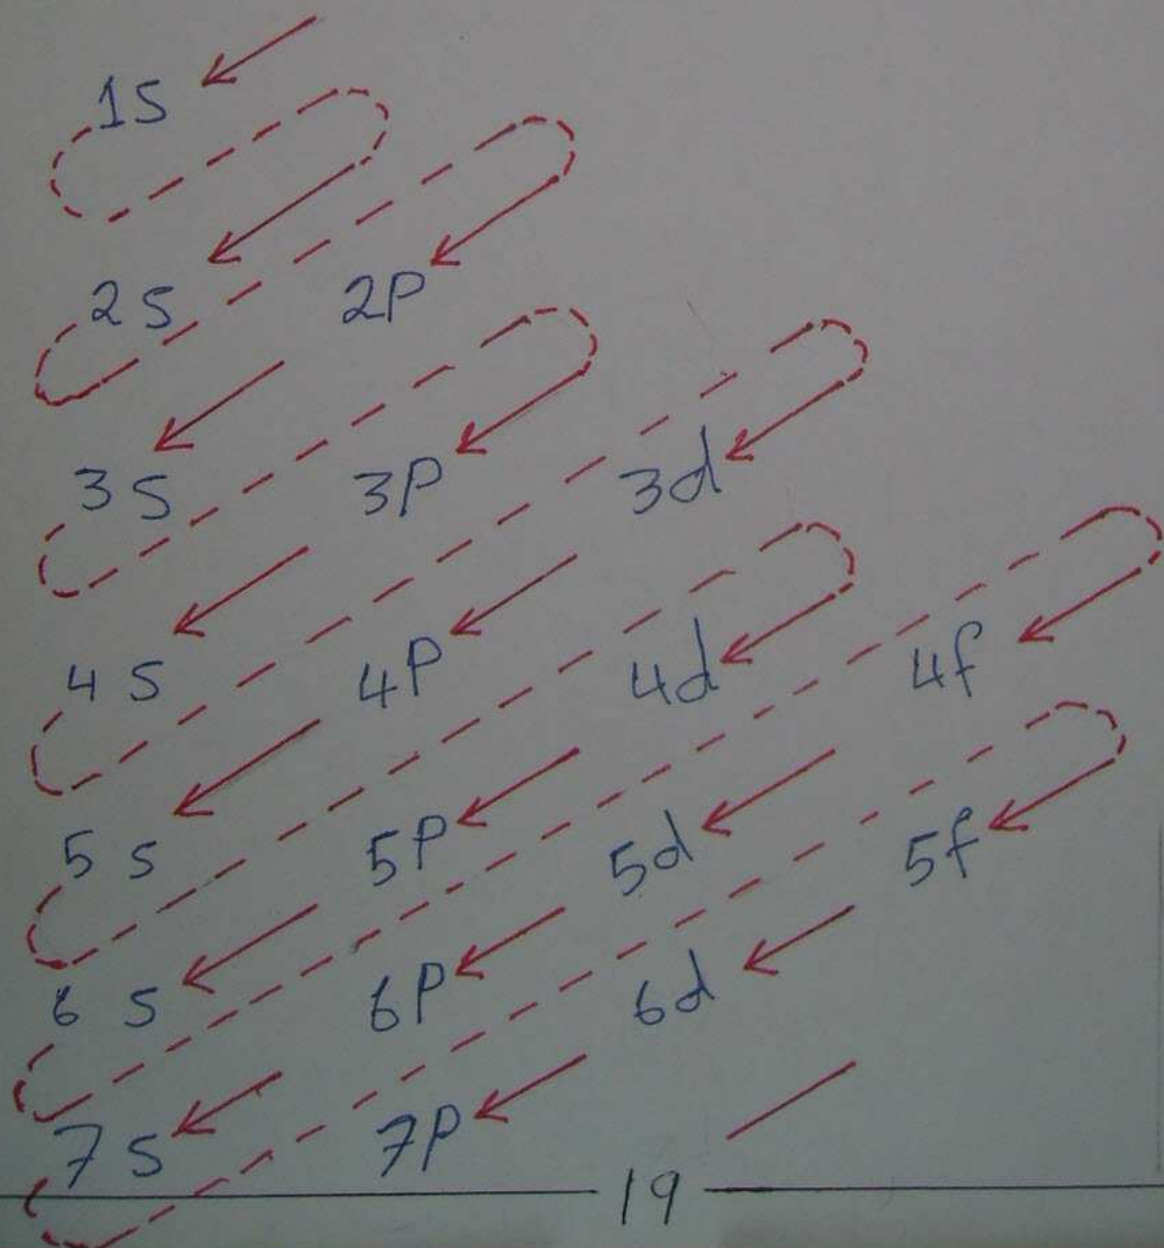 1S
2 S 2P
3 S 3P 3d
4 S 4P 4d 4f
5 S 5P 5d 5f
6 S 6P 6d
7 S 7P
19